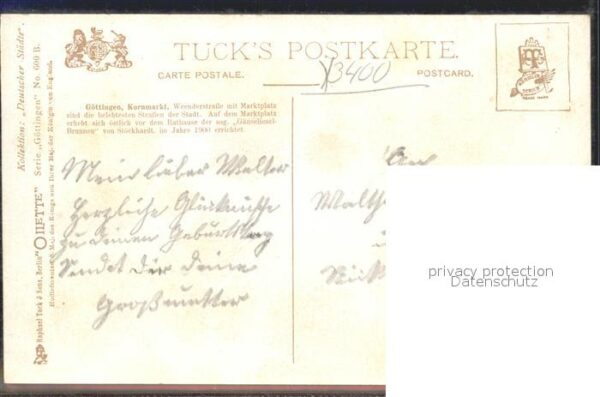 TUCK'S POSTKARTE.
CARTE POSTALE.
POSTCARD.
3400
Göttingen, Kornmarkt. Weenderstraße mit Marktplatz
sind die belebtesten Straßen der Stadt. Auf dem Marktplatz
erhebt sich östlich vor dem Rathause der sog. „Gänseliesel-
Brunnen" von Stöckhardt, im Jahre 1900 errichtet
Mein lieber Walter
Herzliche Glückwünsche
zu deinem Geburtstag
Sendet Dir deine
Großmutter
An
Walth
privacy protection
Datenschutz
Kollektion: „Deutscher Städte".
Serie „Göttingen" No. 609 B.
"OILETTE"
Raphael Tuck & Sons, Berlin